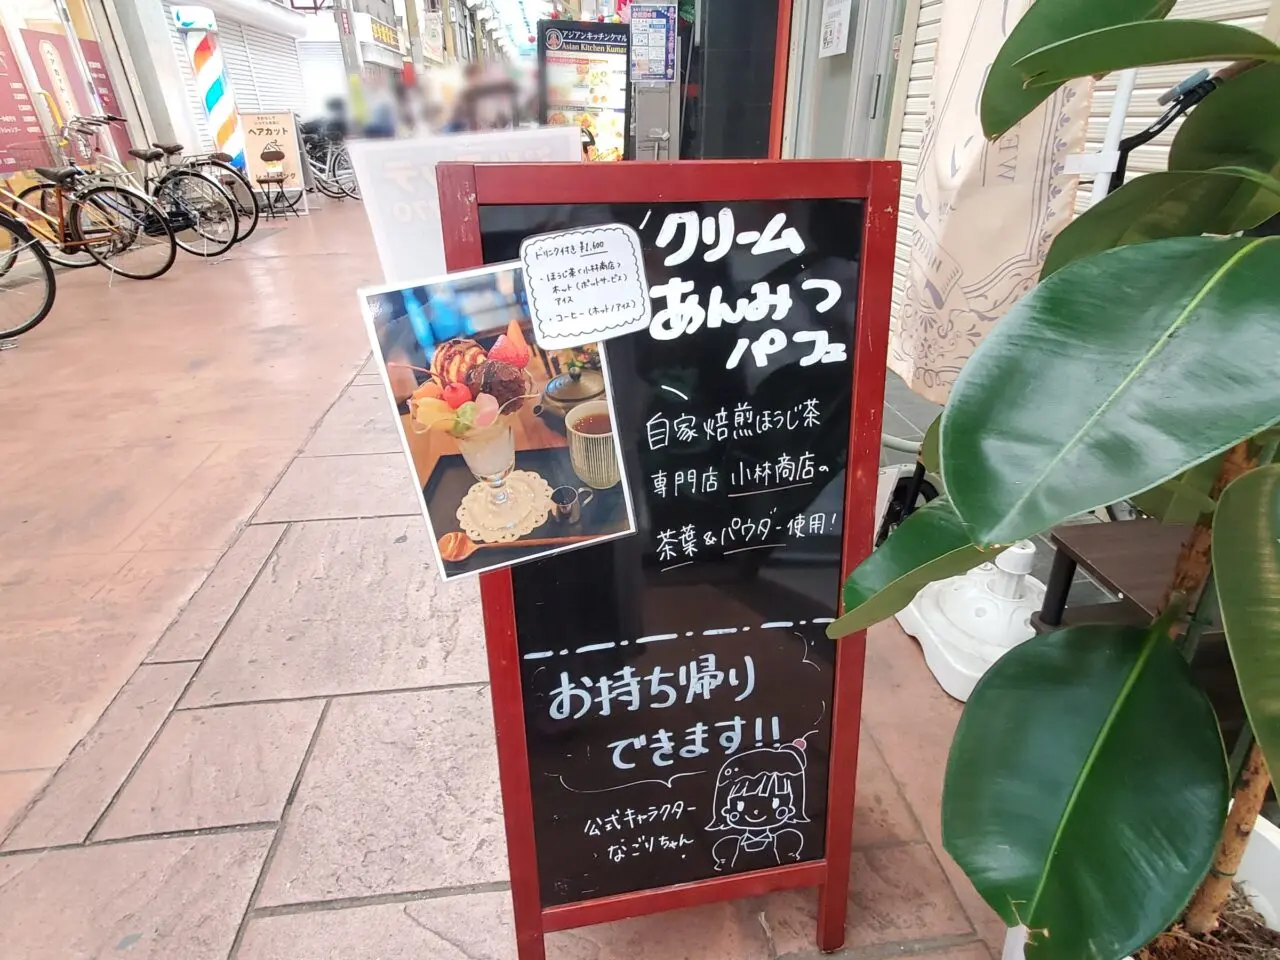 アジアンキッチンクマル
Asian Kitchen Kumar
ヘアカット
クリーム
あんみつ
パフェ
ドリンク付き ¥1,600
・ほうじ茶(小林商店)
ホット(ポットサービス)
アイス
・コーヒー(ホット/アイス)
自家焙煎ほうじ茶
専門店 小林商店の
茶葉&パウダー使用!
お持ち帰り
できます!!
公式キャラクター
なごりちゃん